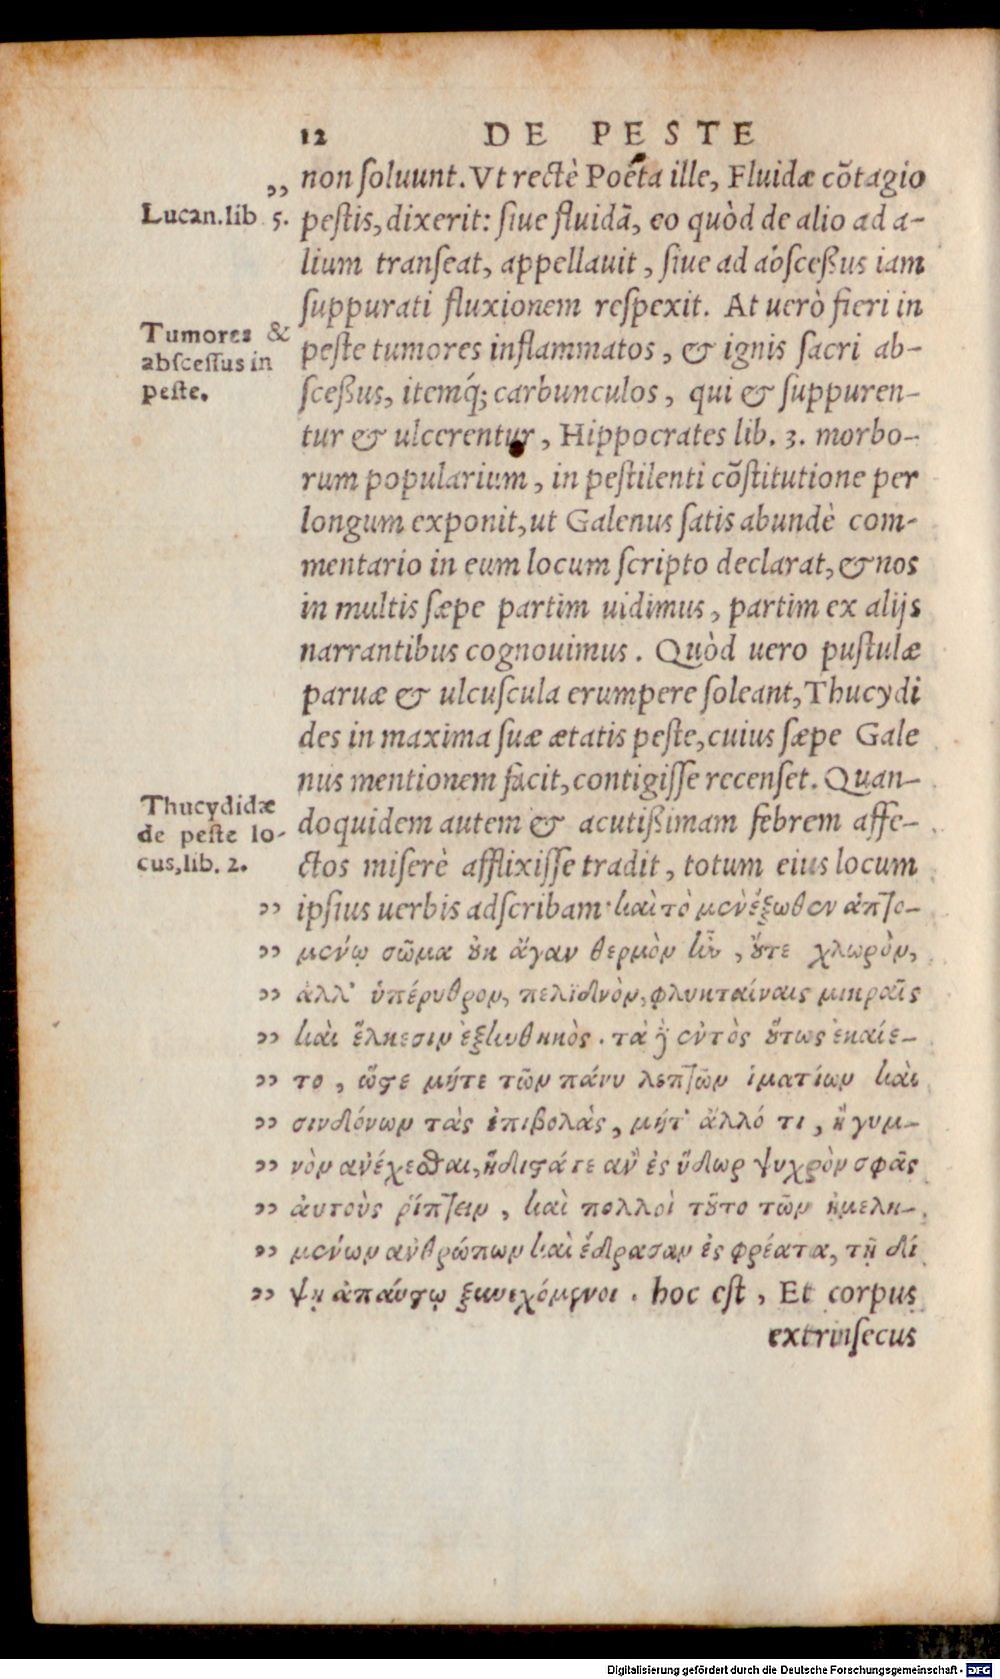 12 DE PESTE
„ non ſoluunt. Vt rectè Poëta ille, Fluidæ cõtagio
Lucan. lib 5.
peſtis, dixerit: ſiue fluidã, eo quòd de alio ad a-
lium tranſeat, appellauit, ſiue ad abſceßus iam
ſuppurati fluxionem reſpexit. At uerò fieri in
Tumores &
abſceſſus in
peſte.
peſte tumores inflammatos, & ignis ſacri ab-
ſceßus, itemq́; carbunculos, qui & ſuppuren-
tur & ulcerentur, Hippocrates lib. 3. morbo-
rum popularium, in peſtilenti cõſtitutione per
longum exponit, ut Galenus ſatis abundè com-
mentario in eum locum ſcripto declarat, & nos
in multis ſæpe partim uidimus, partim ex alijs
narrantibus cognouimus. Quòd uero puſtulæ
paruæ & ulcuſcula erumpere ſoleant, Thucydi
des in maxima ſuæ ætatis peſte, cuius ſæpe Gale
nus mentionem facit, contigiſſe recenſet. Quan-
Thucydidæ
de peſte lo-
cus, lib. 2.
doquidem autem & acutißimam febrem affe-
ctos miſerè afflixiſſe tradit, totum eius locum
„ ipſius uerbis adſcribam· καὶ τὸ μὲν ἔξωθεν ἁπτο-
„ μένῳ σῶμα ȣκ ἄγαν θερμὸν ἦν, ȣ̓́τε χλωρὸν,
„ ἀλλ' ὑπέρυθρον, πελιδνὸν, φλυκταίναις μικραῖς
„ καὶ ἕλκεσιν ἐξηνθηκὸς. τὰ δὲ ἐντὸς ȣ̔́τως ἐκαίε-
„ το, ὥϛε μήτε τῶν πάνυ λεπτῶν ἱματίων καὶ
„ σινδόνων τὰς ἐπιβολὰς, μήτ' ἄλλό τι, ἢ γυμ-
„ νὸν ἀνέχεσθαι, ἥδιϛά τε ἂν ἐς ὕδωρ ψυχρὸν σφᾶς
„ ἀυτοὺς ῥίπτειν, καὶ πολλοὶ τȣ͂το τῶν ἠμελη-
„ μένων ἀνθρώπων καὶ ἔδρασαν ἐς φρέατα, τῇ δί
„ ψῃ ἀπαύϛῳ ξυνεχόμενοι. hoc eſt, Et corpus
extrinſecus
Digitalisierung gefördert durch die Deutsche Forschungsgemeinschaft - DFG